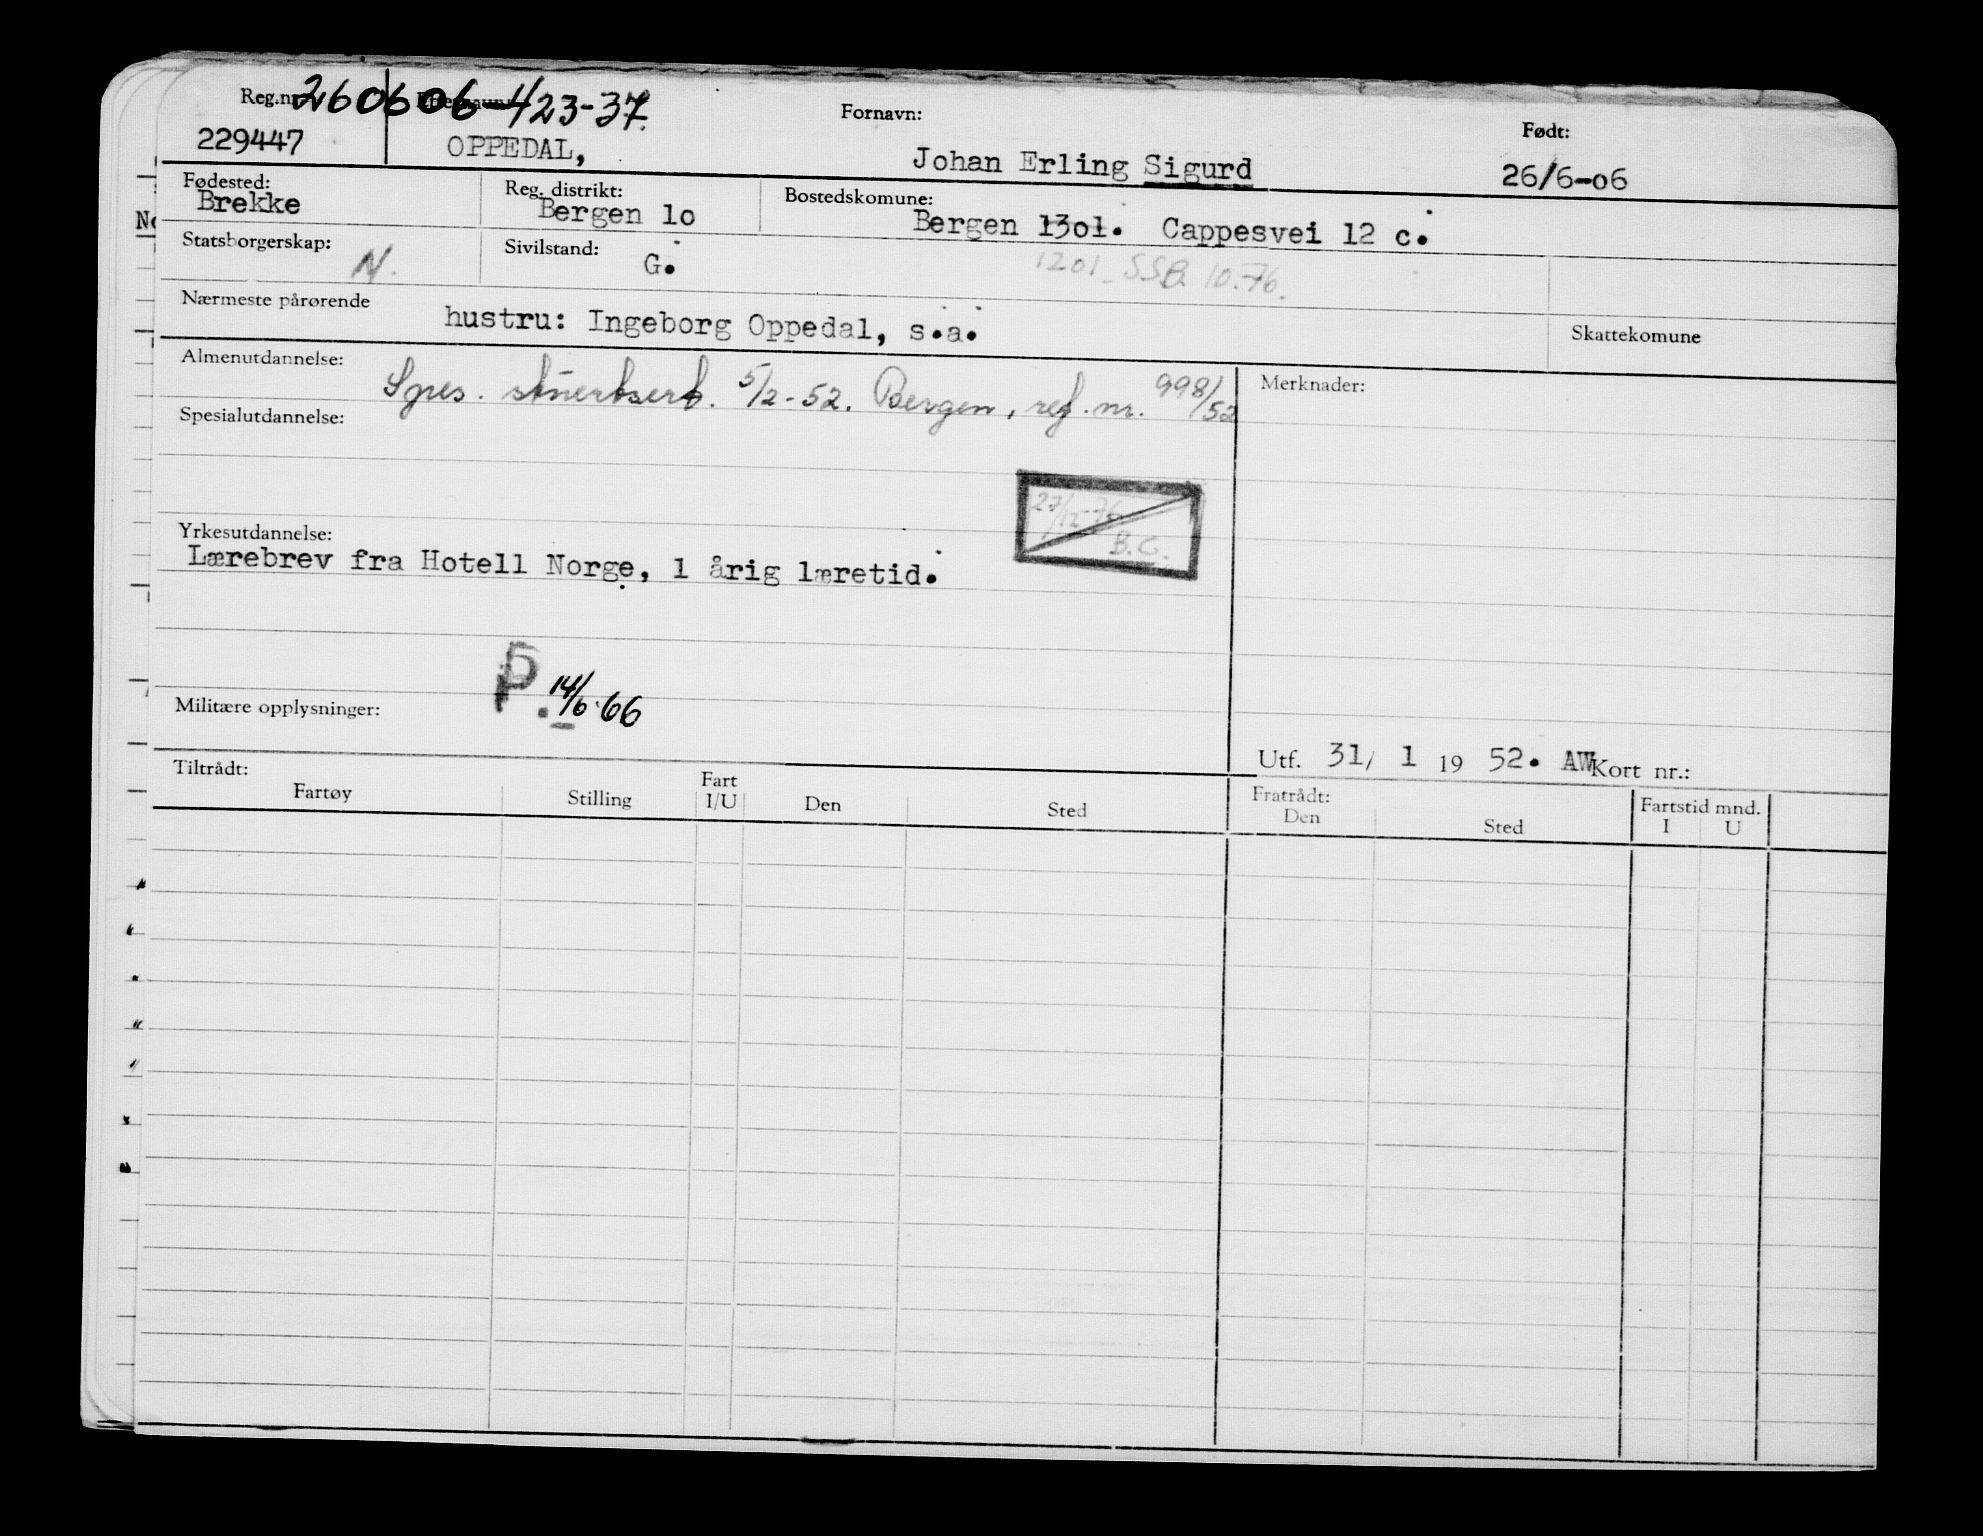 Reg.nr. 260606-423-37.
229447 OPPEDAL, Fornavn: Johan Erling Sigurd Født: 26/6-06
Fødested: Brekke Reg. distrikt: Bergen 1o Bostedskomune: Bergen 13o1. Cappesvei 12 c.
Statsborgerskap: N. Sivilstand: G. 1201 SSB. 10.76.
Nærmeste pårørende hustru: Ingeborg Oppedal, s.a. Skattekomune
Almenutdannelse: Spes. stuertsert. 5/2-52. Bergen, ref. nr. 998/52 Merknader:
Spesialutdannelse:
27/12-76 B.G.
Yrkesutdannelse:
Lærebrev fra Hotell Norge, 1 årig læretid.
P. 14/6.66
Militære opplysninger:
Utf. 31/ 1 19 52. AW Kort nr.:
Tiltrådt: Fratrådt: Fartstid mnd.
Fartøy Stilling Fart I/U Den Sted Den Sted I U